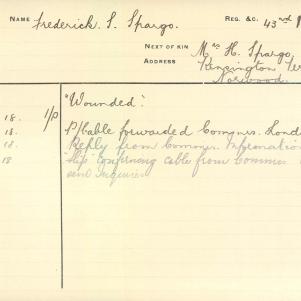 NAME Frederick. S. Spargo. REG. &C. 43rd
NEXT OF KIN Mrs H. Spargo,
ADDRESS Kensington Ter
Norwood.
18. 1/P "Wounded".
18. P/Cable forwarded Commnr. Lond
18. Reply from Commnr. Information
18 Slip confirming cable from Commnr
send inquiries